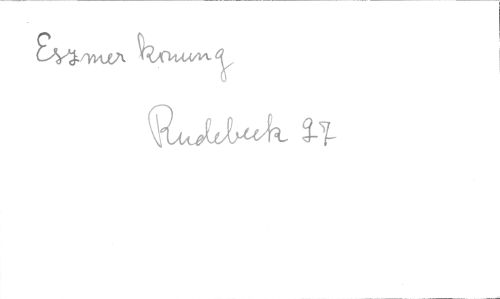 Eszmer konung
Rudebeck 97